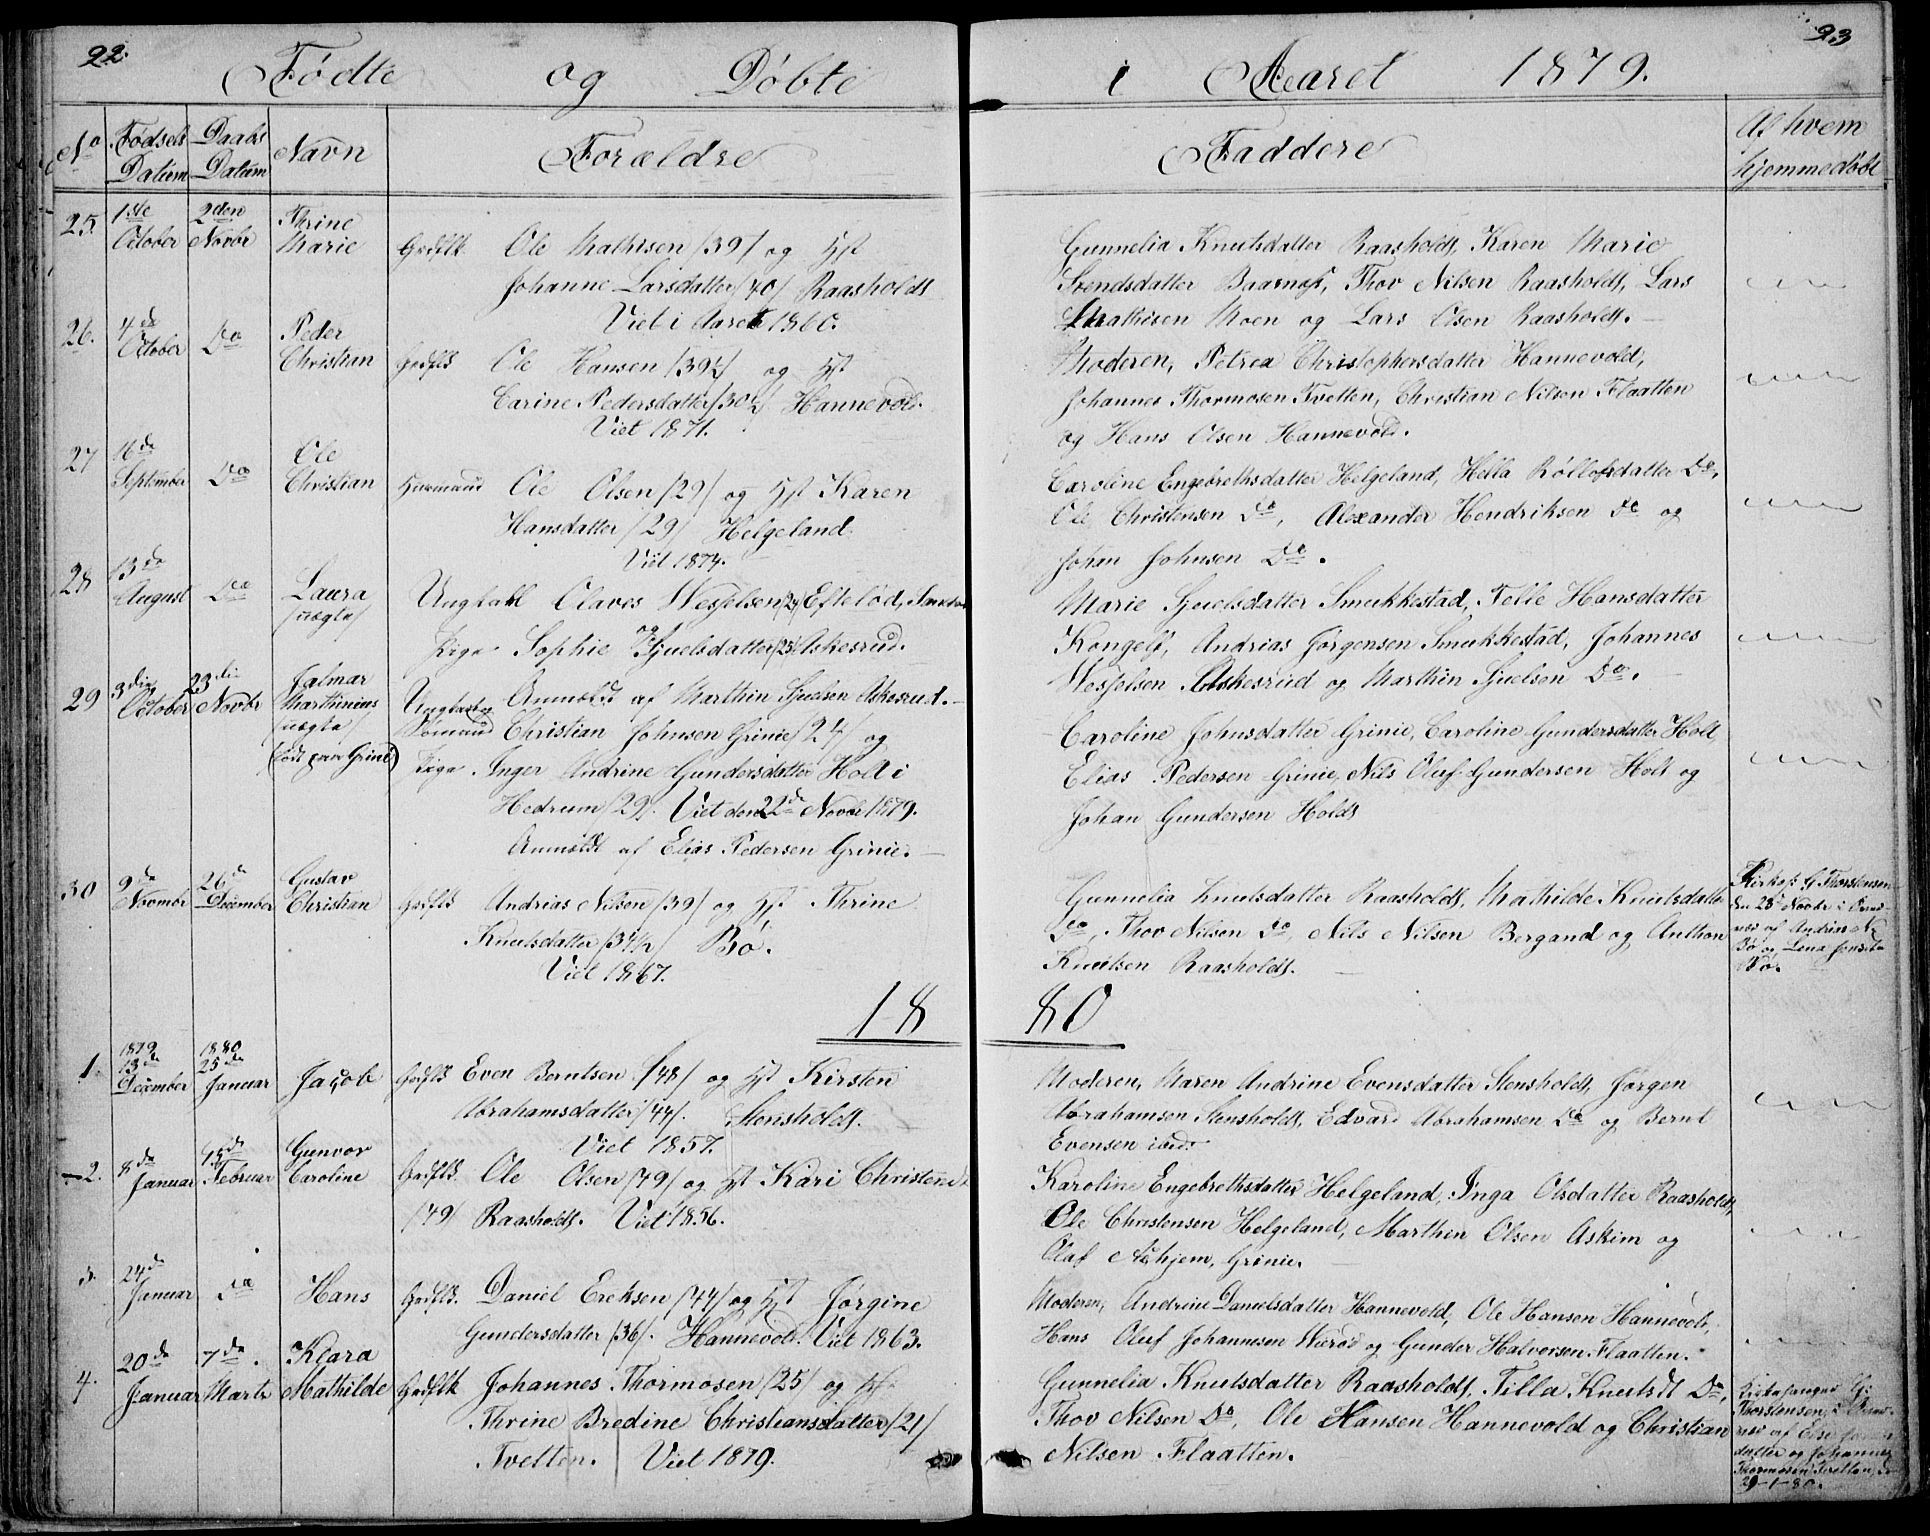 22. 23
Fødte og Døbte i Aaret 1879.
No Fødsels Datum Daabs Datum Navn Forældre Faddere Af hvem hjemmedøbt
25. 1ste October 2den Novbr Thrine Marie Grdflk. Ole Mathisen /39/ og Hst
Johanne Larsdatter /40/ Raasholdt
Viet i Aaret 1860.
Gunnelia Knutsdatter Raasholdt, Karen Marie
Svendsdatter Baarnes, Thov Nilsen Raasholdt, Lars
Mathisen Moen og Lars Olsen Raasholdt.
26. 4de October Do Peder Christian Grdflk Ole Hansen /39½/ og Hst
Carine Pedersdatter /30½/ Hannevold.
Viet 1871.
Moderen, Petrea Christophersdatter Hannevold,
Johannes Thormosen Tvetten, Christian Nilsen Flaatten
og Hans Olsen Hannevold.
27 16de September Do Ole Christian Huusmand Ole Olsen /29/ og Hst Karen
Hansdatter /29/ Helgeland.
Viet 1874.
Caroline Engebrethsdatter Helgeland, Hella Røllofsdatter Do,
Ole Christensen Do, Alexander Hendriksen Do og
Johan Johnsen Do.
28 13de August Do Laura /uægte/ Ungkarl Olaves Wesselsen /24/ Eftelød,
og
Pige Sophie Sjuelsdatter /25/ Askesrud.
Anmeldt af Marthin Sjuelsen Askesrud.
Marie Sjuelsdatter Smukkestad, Telle Hansdatter
Kongelf, Andrias Jørgensen Smukkestad, Johannes
Wesselsen Askesrud og Marthin Sjuelsen Do.
29 3die October 23die Novbr Jalmar Marthinius /uægte/ (født paa Grini) Ungkarl og Sømand Christian Johnsen Grinie /24/ og
Pige. Inger Andrine Gundersdatter Holt i
Hedrum /29/. Viet den 22de Novbr 1879.
Anmeldt af Elias Pedersen Grinie.
Caroline Johnsdatter Grinie, Caroline Gundersdatter Holt,
Elias Pedersen Grinie, Nils Oluf Gundersen Holt og
Johan Gundersen Holdt
30 9de Novmbr 26de December Gustav Christian Grdflk Andrias Nilsen /39/ og Hst Thrine
Knutsdatter /34½/ Bø.
Viet 1867.
Gunnelia Knutsdatter Raasholdt, Mathilde Knutsdatter
Do, Thov Nilsen Do, Nils Nilsen Bergand og Anthon
Knutsen Raasholdt.
Kirkes. G. Thorstensen
den 23 Novbr i
af Andrias N.
Bø og Lena
Bø.
1880
1. 1879 13de December 1880 25de Januar Jacob Grdflk Even Berntsen /48/ og Hst Kirsten
Abrahamsdatter /44/. Stensholdt.
Viet 1857.
Moderen, Maren Andrine Evensdatter Stensholdt, Jørgen
Abrahamsen Stensholdt, Edvard Abrahamsen Do og Bernt
Evensen ibid.
2. 8de Januar 15de Februar Gunvor Caroline Grdflk. Ole Olsen /49/ og Hst Kari Christensd.
/49/ Raasholdt. Viet 1856.
Karoline Engebrethsdatter Helgeland, Inga Olsdatter Raasholdt,
Ole Christensen Helgeland, Marthin Olsen Askim og
Olaf Askjem, Grinie.
3. 24de Januar Do Hans Grdflk. Daniel Ereksen /44/ og Hst Jørgine
Gundersdatter /36/. Hannevold. Viet 1863.
Moderen, Andrine Danielsdatter Hannevold, Ole Hansen Hannevold,
Hans Oluf Johannesen Værød og Gunder Halvorsen Flaatten.
4. 20de Januar 7de Marts Klara Mathilde Grdflk Johannes Thormosen /25/ og Hst
Thrine Bredine Christiansdatter /21/
Tvetten. Viet 1879.
Gunnelia Knutsdatter Raasholdt, Tilla Knutsdt Do,
Thov Nilsen Do, Ole Hansen Hannevold og Christian
Nilsen Flaatten.
Kirkesanger G.
Thorstensen, i
af Else
datter og Johannes
Thormosen Tvetten, d.
29-1-80.